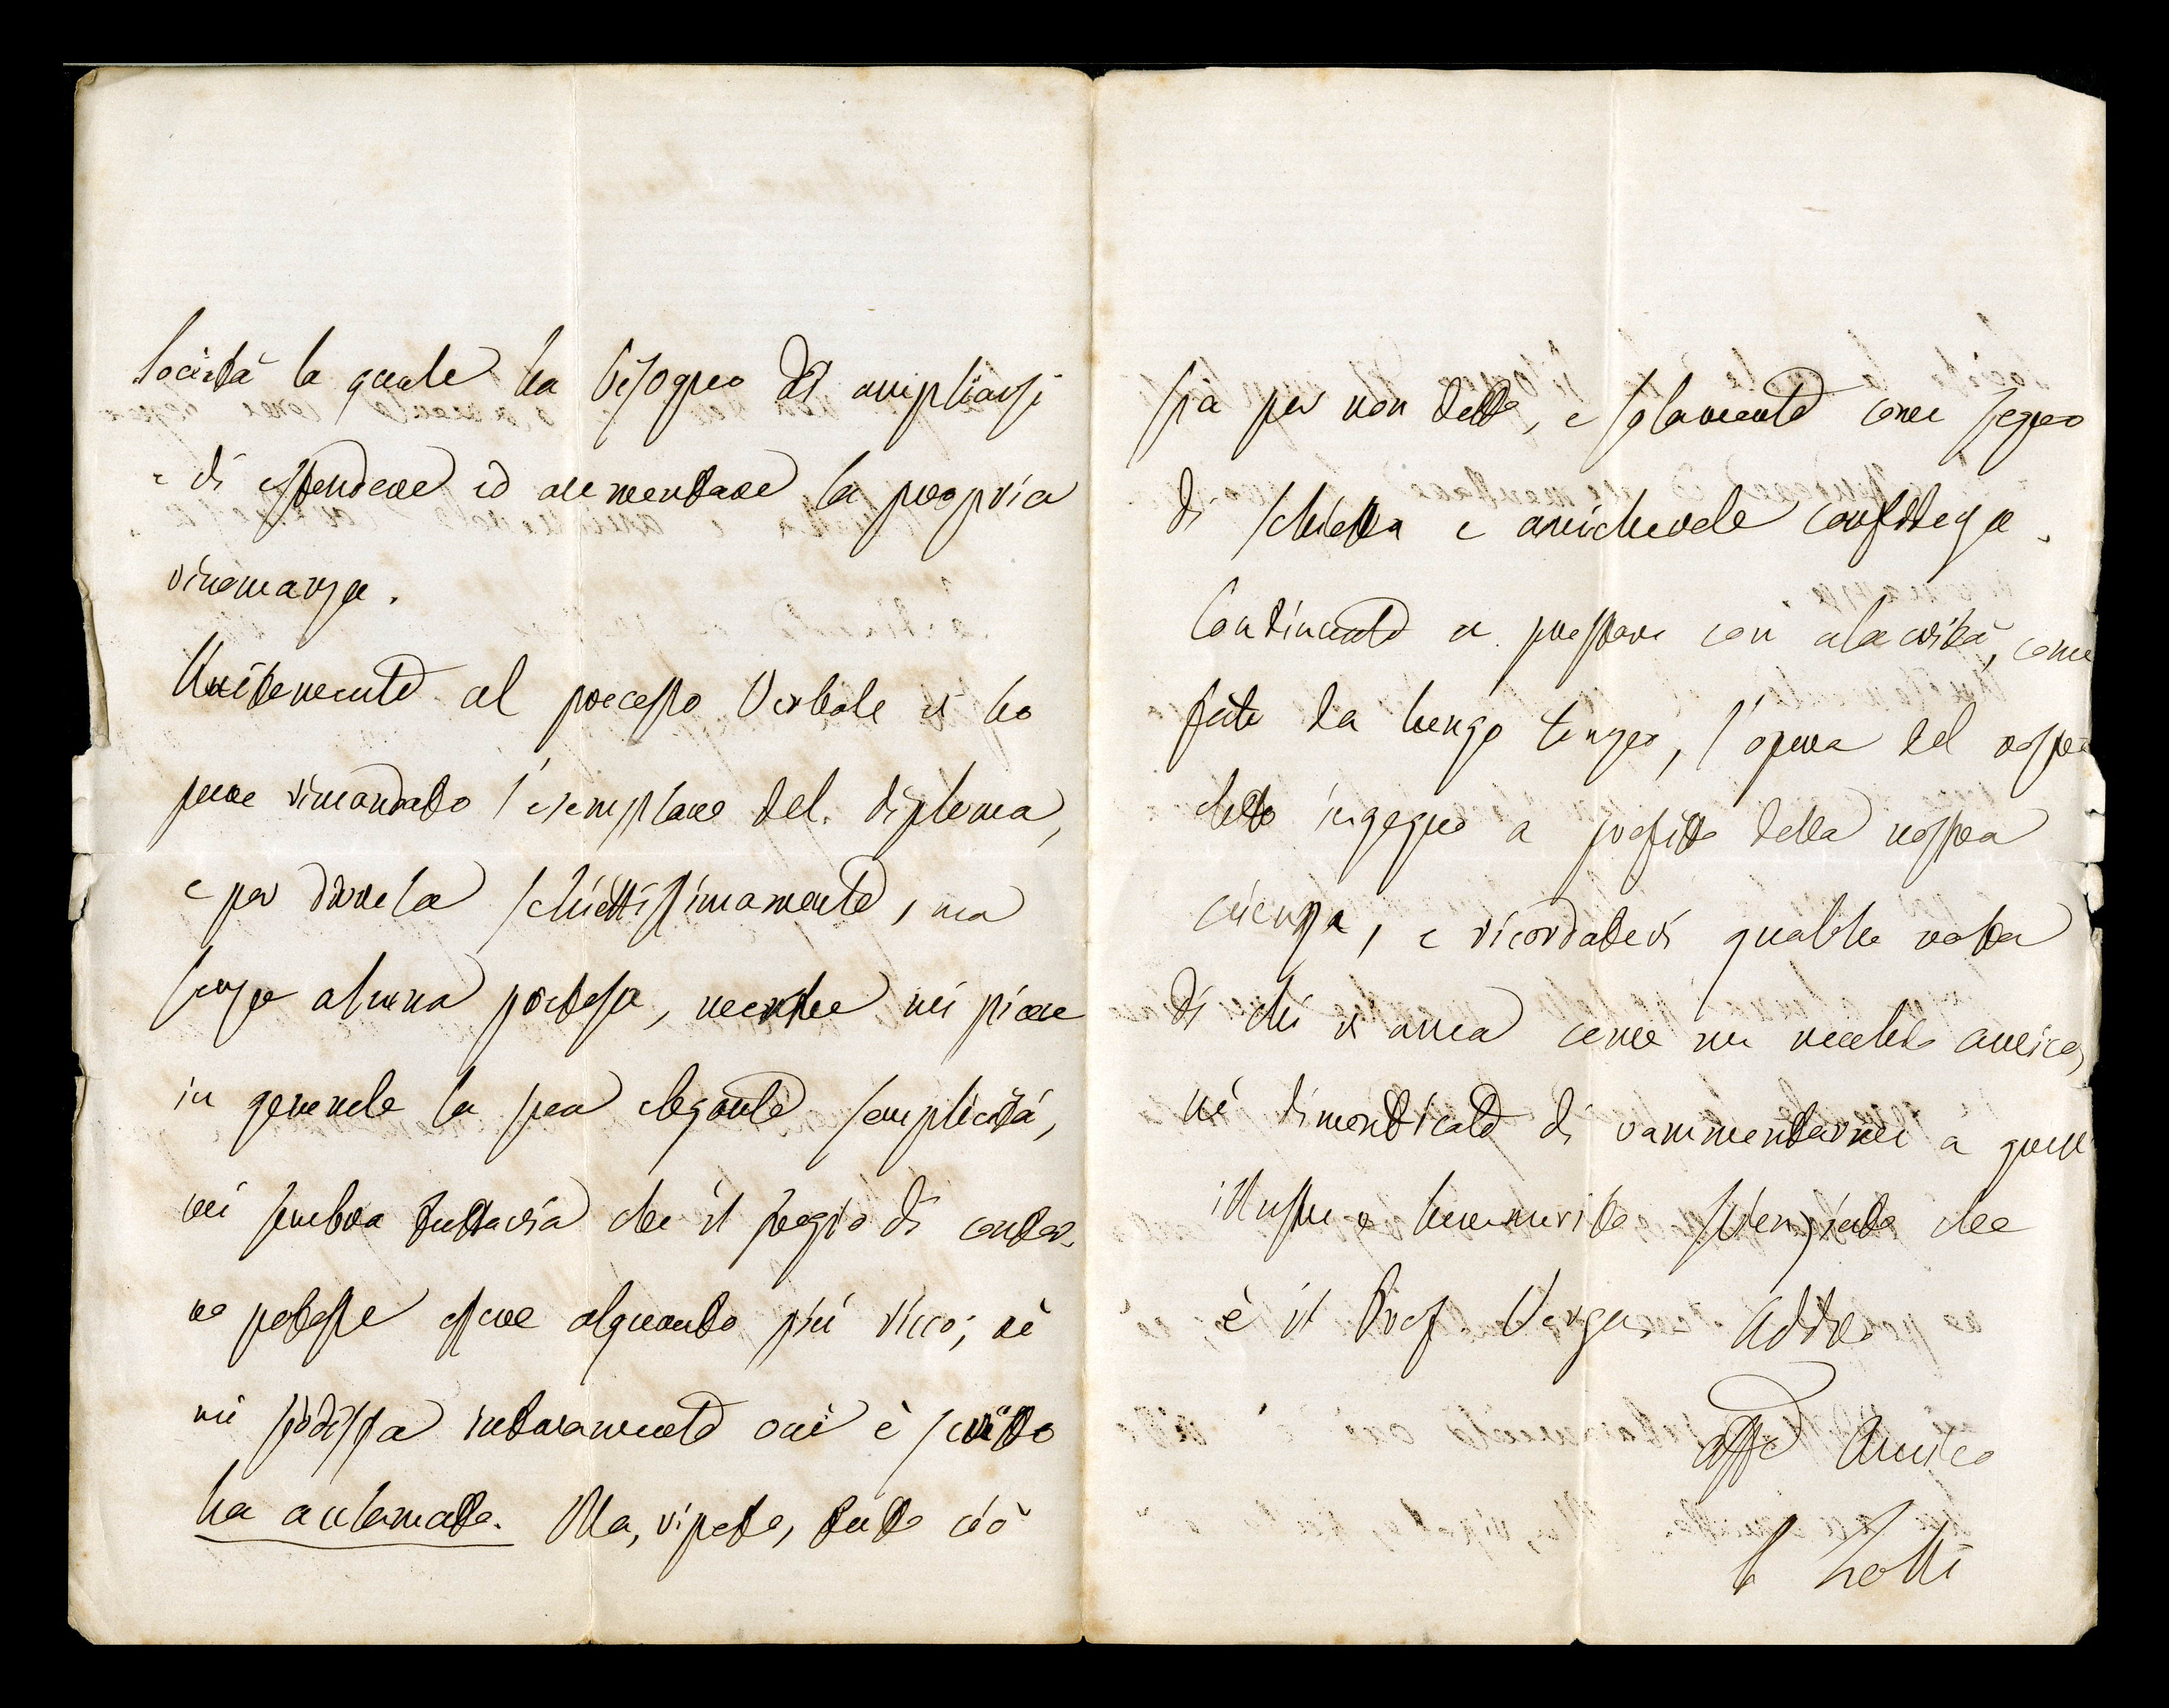 Società la quale ha bisogno di ampliarsi
e di estendere ed aumentare la propria
rinomanza.
Unitamente al processo Verbale vi ho
pure rimandato l'esemplare del diploma,
e per dirvela schiettissimamente, ma
senza alcuna pretesa, mentre mi piace
in generale la sua elegante semplicità,
mi sembra tuttavia che il fregio di contor-
no potesse essere alquanto più ricco; nè
mi sodisfa interamente ove è scritto
ha acclamato. Ma, ripeto, tutto ciò
sia per non detto, e solamente come segno
di schietta e amichevole confidenza.
Continuate a prestare con alacrità, come
fate da lungo tempo, l'opera del vostro
eletto ingegno a profitto della nostra
scienza, e ricordatevi qualche volta
di chi vi ama come un vecchio amico,
nè dimenticate di rammentarmi a quell'
illustre e benemerito scienziato che
è il Prof. Verga. Addio
affo Amico
C Zotti